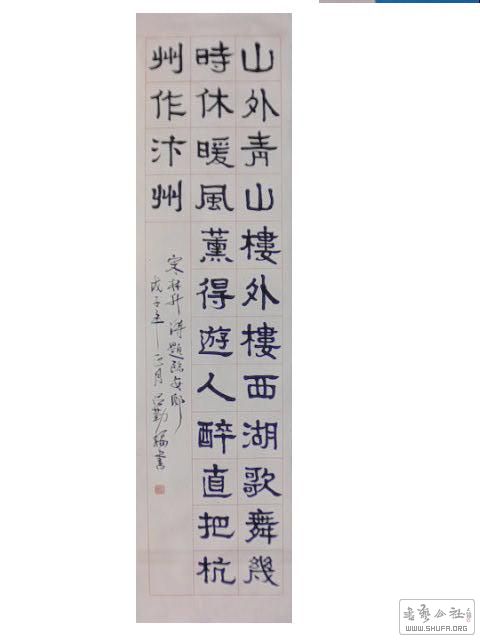 山外青山樓外樓西湖歌舞幾
時休暖風薰得遊人醉直把杭
州作汴州
宋林升詩題臨安邸
戊子年正月呂勤福書
书艺公社
www.SHUFA.ORG